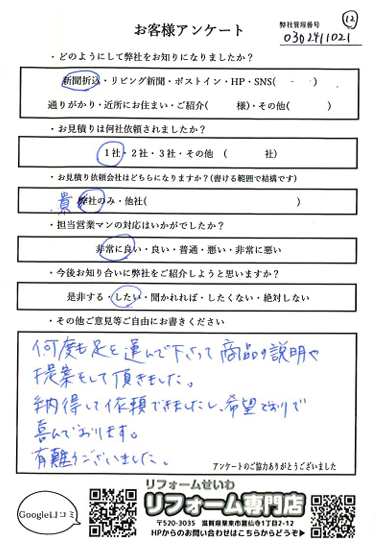 お客様アンケート
弊社管理番号
12
0302411021
・どのようにして弊社をお知りになりましたか?
新聞折込・リビング新聞・ポストイン・HP・SNS( - )
通りがかり・近所にお住まい・ご紹介( 様)・その他( )
・お見積りは何社依頼されましたか?
1社・2社・3社・その他 ( 社)
・お見積り依頼会社はどちらになりますか?(書ける範囲で結構です)
貴
弊社のみ・他社( )
・担当営業マンの対応はいかがでしたか?
非常に良い・良い・普通・悪い・非常に悪い
・今後お知り合いに弊社をご紹介しようと思いますか?
是非する・したい・聞かれれば・したくない・絶対しない
・その他ご意見等ご自由にお書きください
何度も足を運んで下さって商品の説明や
提案をして頂きました。
納得して依頼できましたし、希望どおりで
喜んでおります。
有難うございました。
アンケートのご協力ありがとうございました
Google口コミ
リフォームせいわ
リフォーム専門店
〒520-3035 滋賀県栗東市霊仙寺1丁目2-12
HPからのお問い合わせはこちらからどうぞ